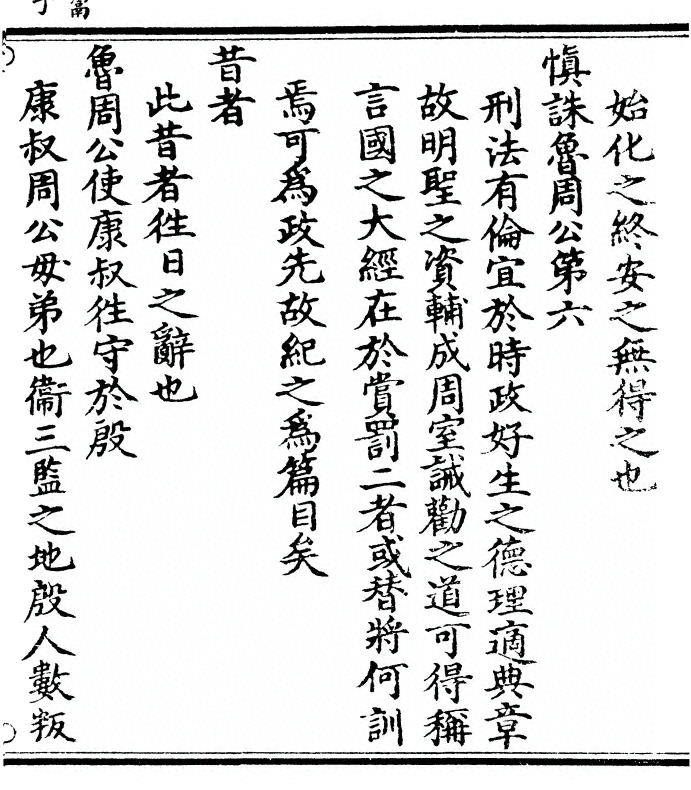 始化之終安之無得之也
愼誅魯周公第六
刑法有倫宜於時政好生之德理適典章
故明聖之資輔成周室誡勸之道可得稱
言國之大經在於賞罰二者或替將何訓
焉可爲政先故紀之爲篇目矣
昔者
此昔者徃日之辭也
魯周公使康叔徃守於殷
康叔周公毋弟也衞三監之地殷人數叛